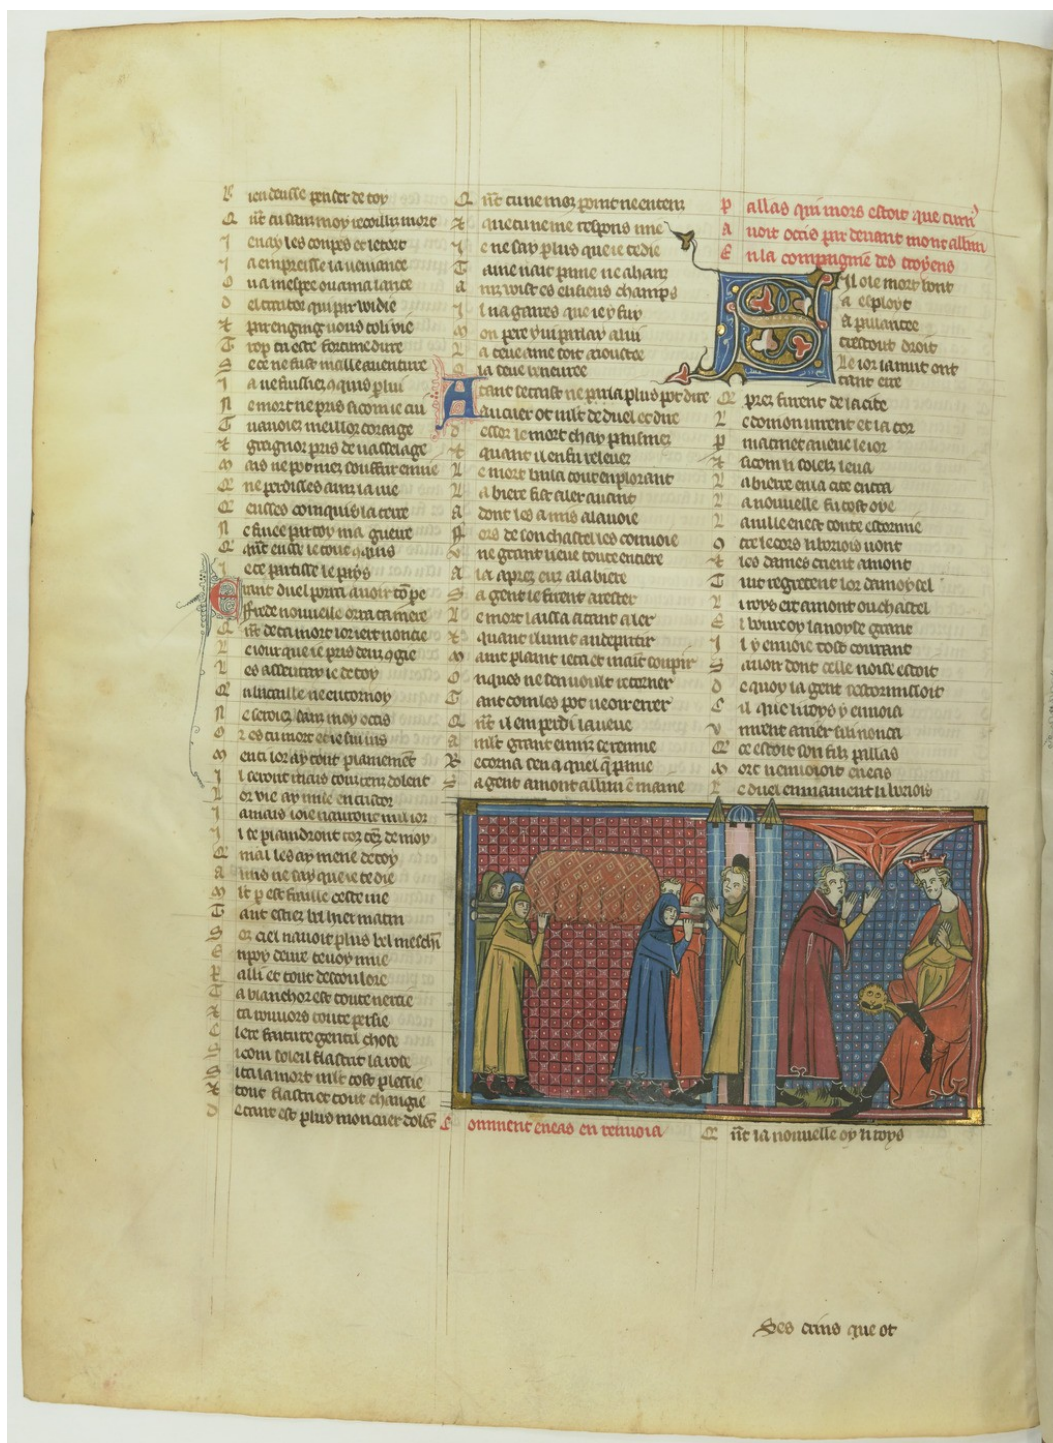 B ien deusse penser de toy
Q nt tu sanz moy recoilliz mort
J en ay les coupes et le tort
J a en preisse la veniance
O u a mespee ou a ma lance
D el traitor qui par widie
Et par enging vous toli vie
T rop ta este fortune dure
S e ce ne fust malle aventure
J a ne fussiez 9quis p lui
N e mort ne pris si com ie cui
T u avoiez meillor corage
Et greignor pris de vasselage
M ais ne pot miex souffrir envie
Q ne perdisses ainz la vie
Q eusses conquis la terre
N e finee par toy ma guerre
Q nt eusse ie tout 9quis
J e ce partisse le pays
G rant duel porra avoir to pe
Qnt de ta mort lor iert noncie
L e iour que ie pris de eux 9gie
L es asseuray ie de toy
Q n bataille ne en tornoy
N e seroiez sanz moy occis
O r es tu mort et ie sui vis
M enti lor ay tout plainement
J l seront mais touz tenz dolent
L or vie ay mise en tristor
J amais ioie nauront maior
J l se plaindront toz tenz de moy
Q mal les ay mene de toy
A mis ne say que ie te die
M lt p est fraille ceste vie
T ant estiez bel hier matin
S oz ciel navoit plus bel meschin
E n poy deure te voy mue
P alli et tout descoulore
T a blanchor est toute nercie
T a rouvors toute persie
C lere faiture gentil chose
S i com soleil flastrit la rose
S i ta la mort mlt tost plessie
Et tout flastri et tout changie
D e tant est plus mon cuer dolent
Q nt tu ne moz point ne entenz
Et que tu ne me respons mie
J e ne say plus que ie te die
T ame nait paine ne ahanz
A inz voist es elisiens champs
J l na gaires que ie y fuy
M on pere y vi parlay a lui
L a teue ame soit aioustee
A tant se traist ne parla plus pot dire
Au cuer ot mlt de duel et dire
D esor le mort chay pasmez
Et quant il en fu relevez
L e mort baisa tout en plorant
L a biere fist aler avant
A dont les amis a la voie
F ors de son chastel les convoie
U ne grant lieue toute entiere
A la aprez eux a la biere
S a gent le firent arester
L e mort laissa a tant aler
Et quant il vint au departir
M aint plaint ieta et maint soupir
O nques ne sen voult retorner
T ant com les pot veoir errer
Q nt il en perdi la veue
A mlt grant ennui se remue
R etorna sen
S a gent amont
P allas qui mors estoit que turn
A voit occis par devant mont alban
E n la compaignie des troyens
C il o le mort sont
a esploit
Et tout droit
Le ior la nuit ont
tant erre
Q prez furent de la cite
L endemain vinrent et la tor
P
Et si com li solelz leva
L a biere en la cite entra
L a nouvelle fu tost oye
L a ville en est toute estormie
O tre le cors li boriois vont
Et les dames crient amont
T uit regretent lor damoysel
L i roys ert amont ou chastel
E l bourc oy la noyse grant
J l y envoie tost courant
S avoir dont celle noise estoit
D e quoy la gent sestormissoit
C il que li roys y envoia
V int arrier si li nonca
Q ce estoit son filz pallas
M ort lenvoioit eneas
L e duel en mainent li boriois
C omment eneas en renvoia
Q nt la nouvelle oy li roys
Ses crins que ot